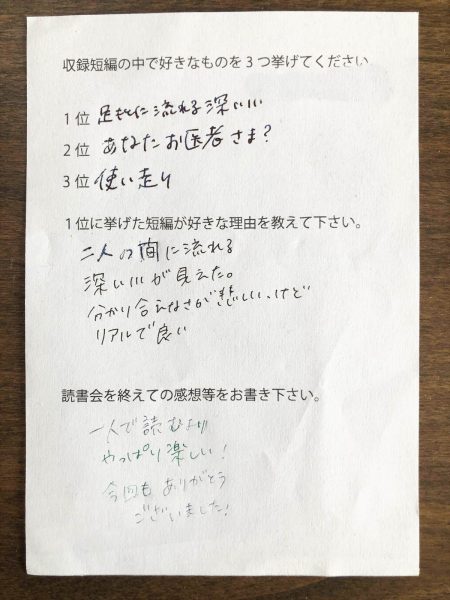 収録短編の中で好きなものを3つ挙げてください
1位 足もとに流れる深い川
2位 あなたお医者さま?
3位 使い走り
1位に挙げた短編が好きな理由を教えて下さい。
二人の間に流れる
深い川が見えた。
分かり合えなさが悲しい、けど
リアルで良い
読書会を終えての感想等をお書き下さい。
一人で読むより
やっぱり楽しい!
今回もありがとう
ございました!